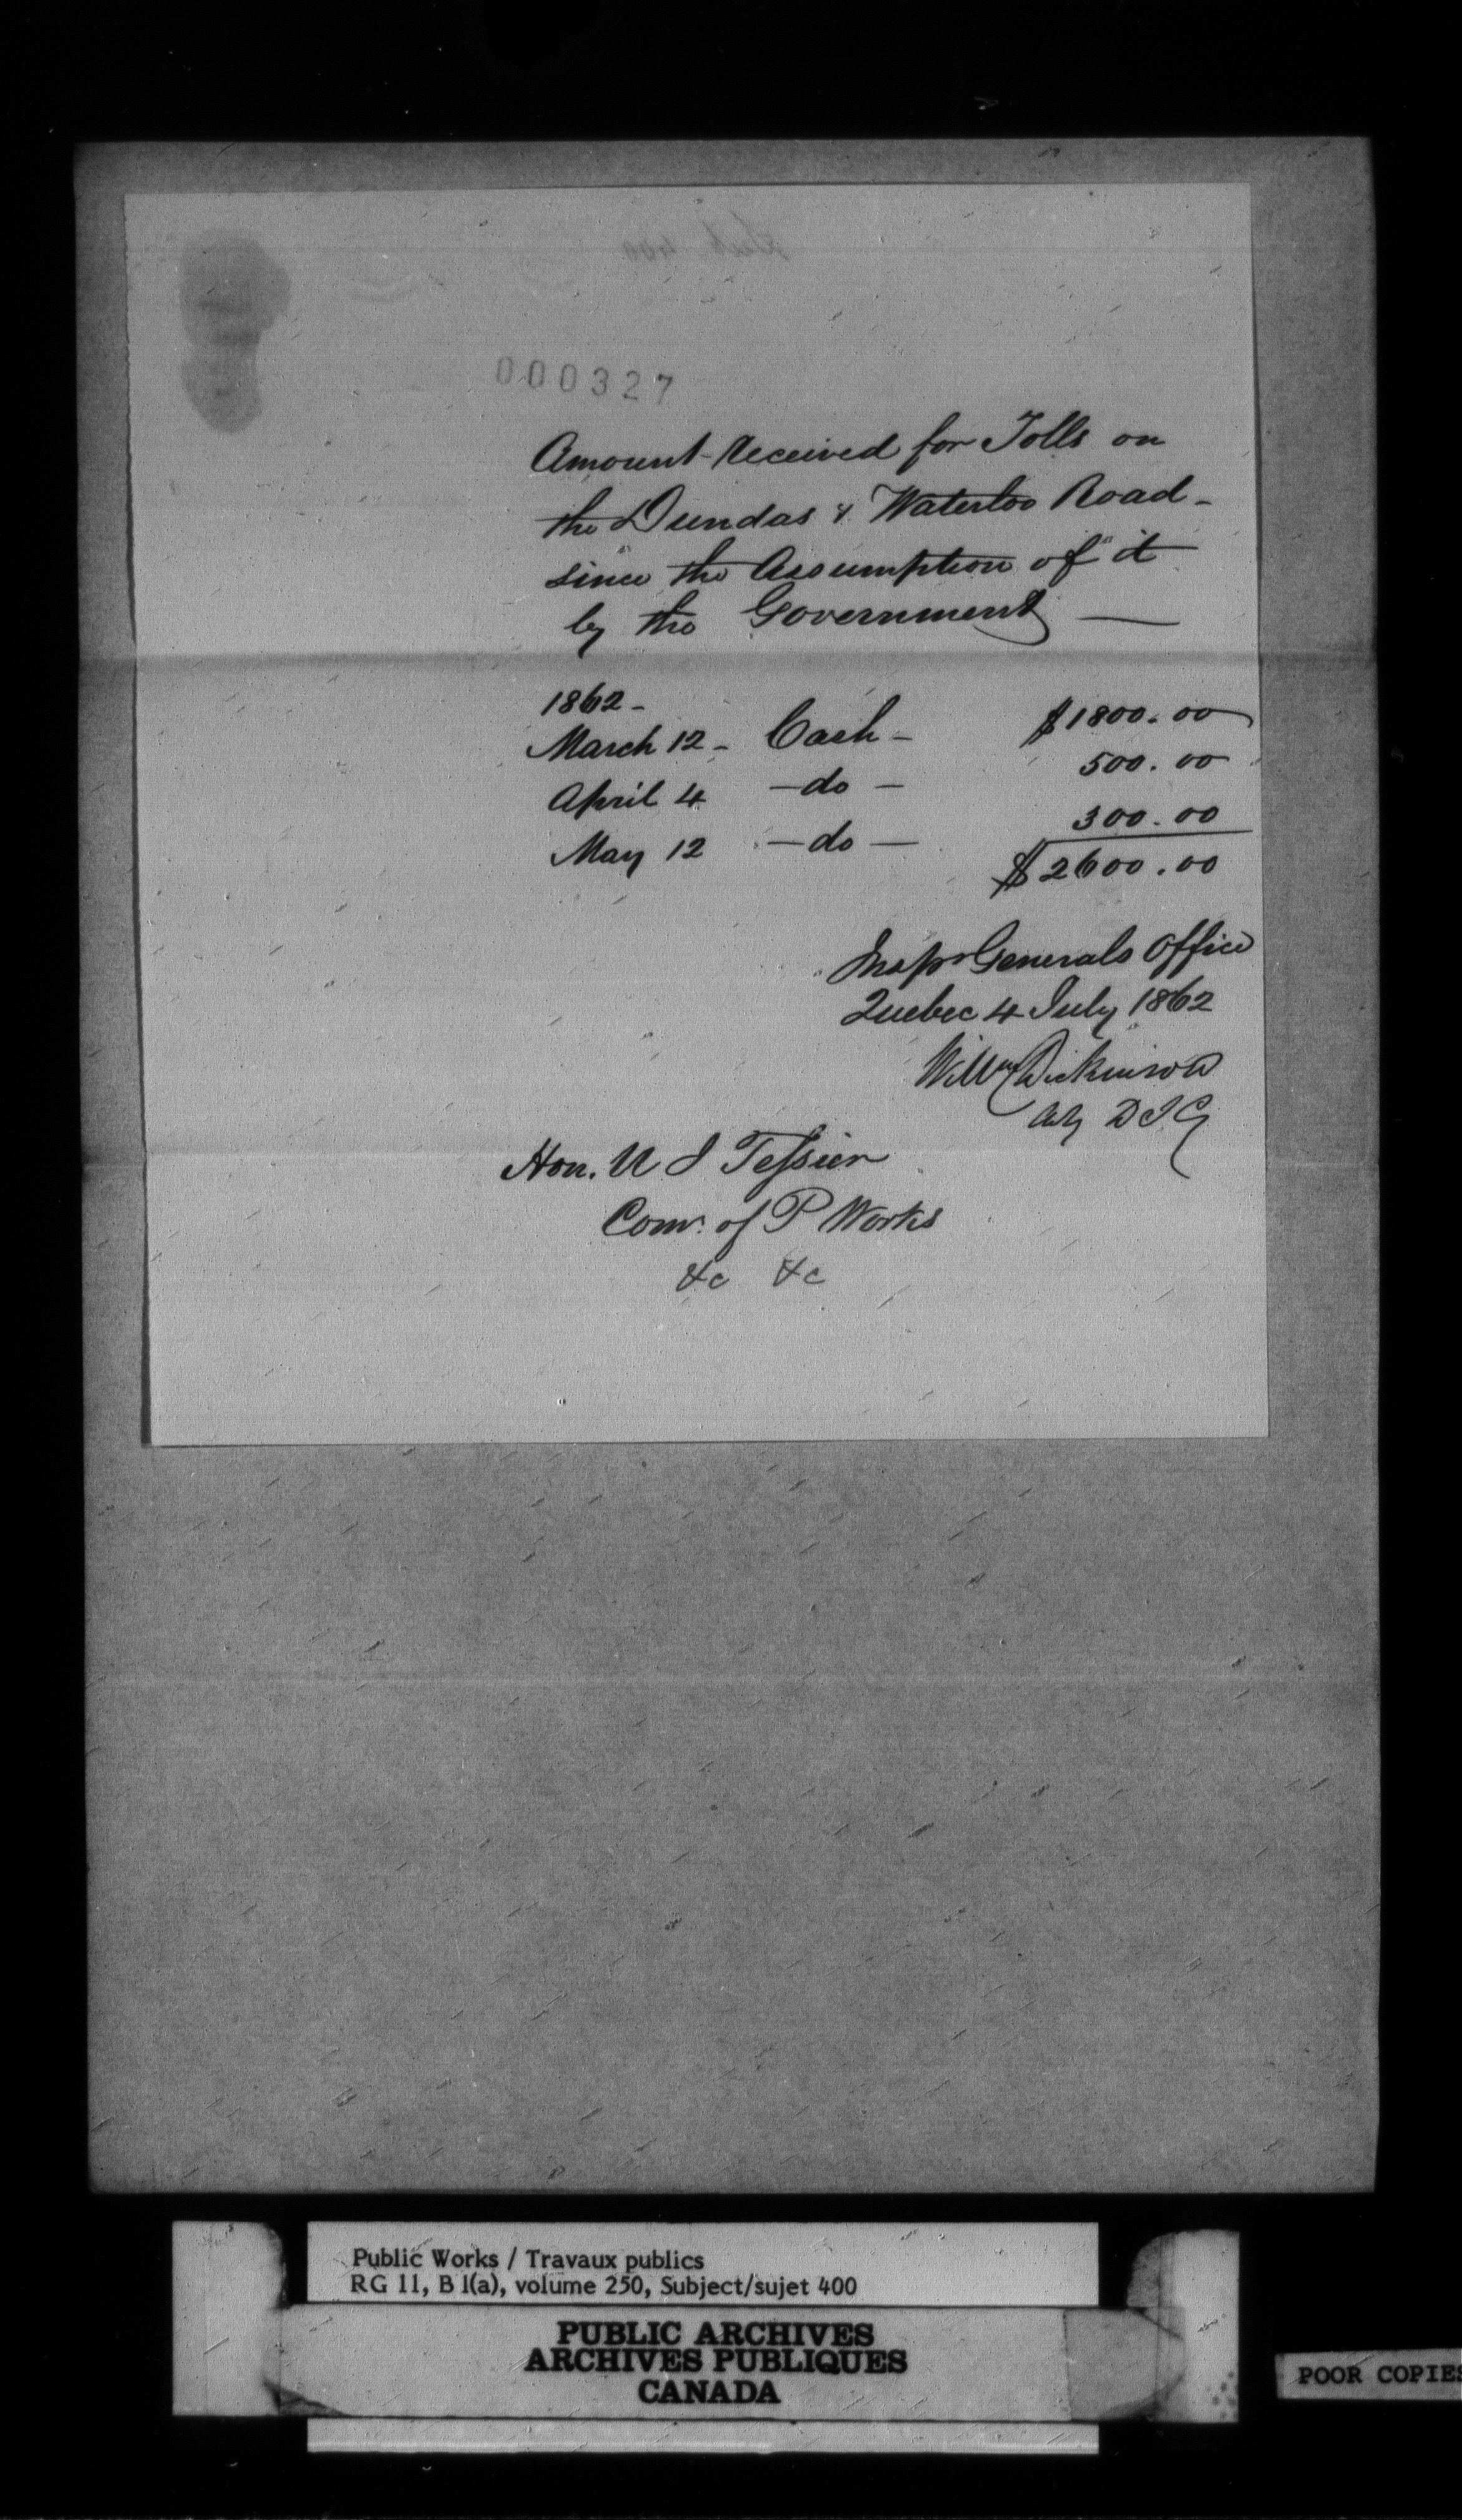 000327
Amount received for Tolls on
the Dundas & Waterloo Road -
since the Assumption of it
by the Government —
1862 -
March 12 - Cash - $1800.00
April 4 - do - 500.00
May 12 - do - 300.00
$2600.00
Inspr Generals Office
Quebec 4 July 1862
Willm Dickinson
Actg D I G
Hon. U J Tessier
Comr. of P Works
&c &c
Public Works / Travaux publics
RG 11, B 1(a), volume 250, Subject/sujet 400
PUBLIC ARCHIVES
ARCHIVES PUBLIQUES
CANADA
POOR COPIES